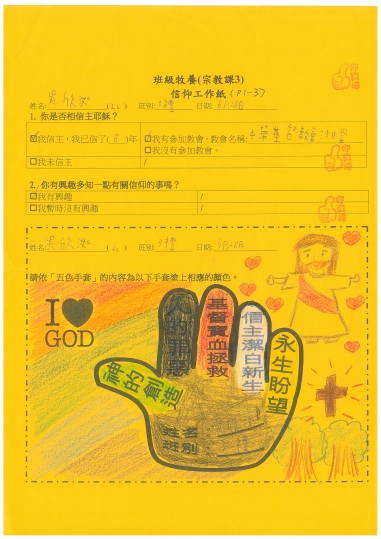 班級牧養(宗教課3)
信仰工作紙(P1-3)
姓名: 吳欣 班別: 日期: 6月
1. 你是否相信主耶穌?
☑我信主,我已信了( 8 )年 ☑我有參加教會,教會名稱: 中華基督教會
☐我沒有參加教會。
☐我未信主 /
2. 你有興趣多知一點有關信仰的事嗎?
☑我有興趣 /
☐我暫時沒有興趣 /
姓名: 吳欣 班別: 日期:
請依「五色手套」的內容為以下手套塗上相應的顏色。
I
GOD
神的創造
人的罪惡
基督寶血拯救
信主潔白新生
永生盼望
姓名
班別